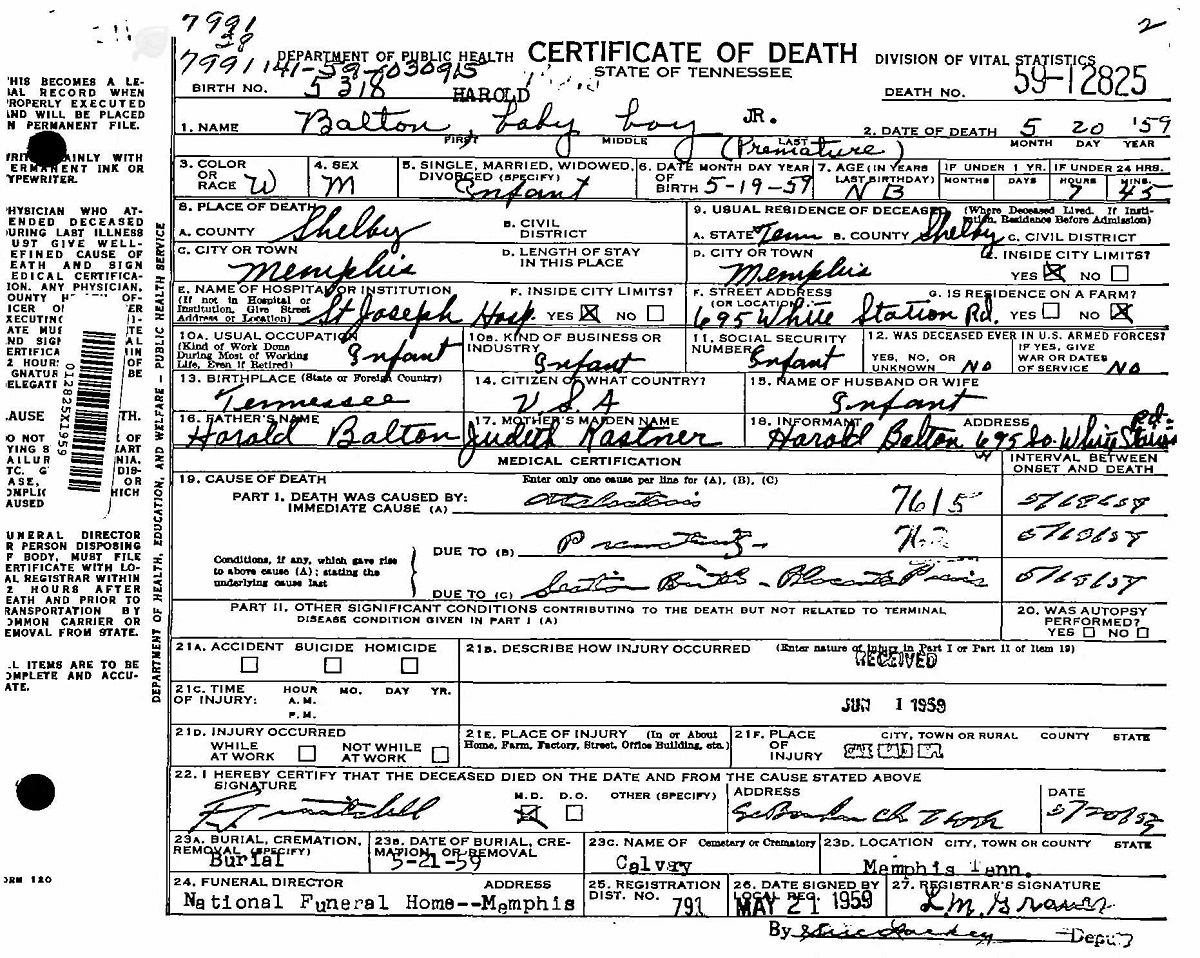 7991
28
2
7991 141-59-030915
DEPARTMENT OF PUBLIC HEALTH CERTIFICATE OF DEATH DIVISION OF VITAL STATISTICS
STATE OF TENNESSEE
BIRTH NO. 5318 DEATH NO. 59-12825
HAROLD JR.
1. NAME Balton baby boy (Premature) 2. DATE OF DEATH 5 20 '59
FIRST MIDDLE LAST MONTH DAY YEAR
3. COLOR OR RACE W
4. SEX M
5. SINGLE, MARRIED, WIDOWED, DIVORCED (SPECIFY) Infant
6. DATE OF BIRTH MONTH DAY YEAR 5-19-59
7. AGE (IN YEARS LAST BIRTHDAY) NB
IF UNDER 1 YR. MONTHS DAYS
IF UNDER 24 HRS. HOURS 7 MINS. 45
8. PLACE OF DEATH
A. COUNTY Shelby
B. CIVIL DISTRICT
9. USUAL RESIDENCE OF DECEASED (Where Deceased Lived. If Institution, Residence Before Admission)
A. STATE Tenn B. COUNTY Shelby C. CIVIL DISTRICT
C. CITY OR TOWN Memphis
D. LENGTH OF STAY IN THIS PLACE
D. CITY OR TOWN Memphis
E. INSIDE CITY LIMITS? YES NO
E. NAME OF HOSPITAL OR INSTITUTION (If not in Hospital or Institution, Give Street Address or Location) St Joseph Hosp.
F. INSIDE CITY LIMITS? YES NO
F. STREET ADDRESS (OR LOCATION) 695 White Station Rd.
G. IS RESIDENCE ON A FARM? YES NO
10A. USUAL OCCUPATION (Kind of Work Done During Most of Working Life, Even if Retired) Infant
10B. KIND OF BUSINESS OR INDUSTRY Infant
11. SOCIAL SECURITY NUMBER Infant
12. WAS DECEASED EVER IN U.S. ARMED FORCES?
YES, NO, OR UNKNOWN No
IF YES, GIVE WAR OR DATES OF SERVICE No
13. BIRTHPLACE (State or Foreign Country) Tennessee
14. CITIZEN OF WHAT COUNTRY? U.S.A
15. NAME OF HUSBAND OR WIFE Infant
16. FATHER'S NAME Harold Balton
17. MOTHER'S MAIDEN NAME Judith Kastner
18. INFORMANT ADDRESS Harold Balton 695 So. White Station Rd.
MEDICAL CERTIFICATION
INTERVAL BETWEEN ONSET AND DEATH
19. CAUSE OF DEATH Enter only one cause per line for (A), (B), (C)
PART I. DEATH WAS CAUSED BY:
IMMEDIATE CAUSE (A) Atelectasis 7615
Conditions, if any, which gave rise to above cause (A); stating the underlying cause last
DUE TO (B) Prematurity
DUE TO (C) Section Birth - Placenta Previa
PART II. OTHER SIGNIFICANT CONDITIONS CONTRIBUTING TO THE DEATH BUT NOT RELATED TO TERMINAL
DISEASE CONDITION GIVEN IN PART I (A)
20. WAS AUTOPSY PERFORMED? YES NO
21A. ACCIDENT SUICIDE HOMICIDE
21B. DESCRIBE HOW INJURY OCCURRED (Enter nature of injury in Part I or Part II of Item 19)
RECEIVED
JUN 1 1959
21C. TIME OF INJURY: HOUR MO. DAY YR.
A.M.
P.M.
21D. INJURY OCCURRED
WHILE AT WORK NOT WHILE AT WORK
21E. PLACE OF INJURY (In or About Home, Farm, Factory, Street, Office Building, etc.)
21F. PLACE OF INJURY CITY, TOWN OR RURAL COUNTY STATE
22. I HEREBY CERTIFY THAT THE DECEASED DIED ON THE DATE AND FROM THE CAUSE STATED ABOVE
SIGNATURE M.D. D.O. OTHER (SPECIFY) ADDRESS DATE
5/20/59
23A. BURIAL, CREMATION, REMOVAL (SPECIFY) Burial
23B. DATE OF BURIAL, CREMATION, OR REMOVAL 5-21-59
23C. NAME OF Cemetery or Crematory Calvary
23D. LOCATION CITY, TOWN OR COUNTY STATE Memphis Tenn.
24. FUNERAL DIRECTOR ADDRESS
National Funeral Home--Memphis
25. REGISTRATION DIST. NO. 791
26. DATE SIGNED BY LOCAL REG. MAY 21 1959
27. REGISTRAR'S SIGNATURE L.M. Graves
By Deputy
DEPARTMENT OF HEALTH, EDUCATION, AND WELFARE - PUBLIC HEALTH SERVICE
012825X1959
ORM 120